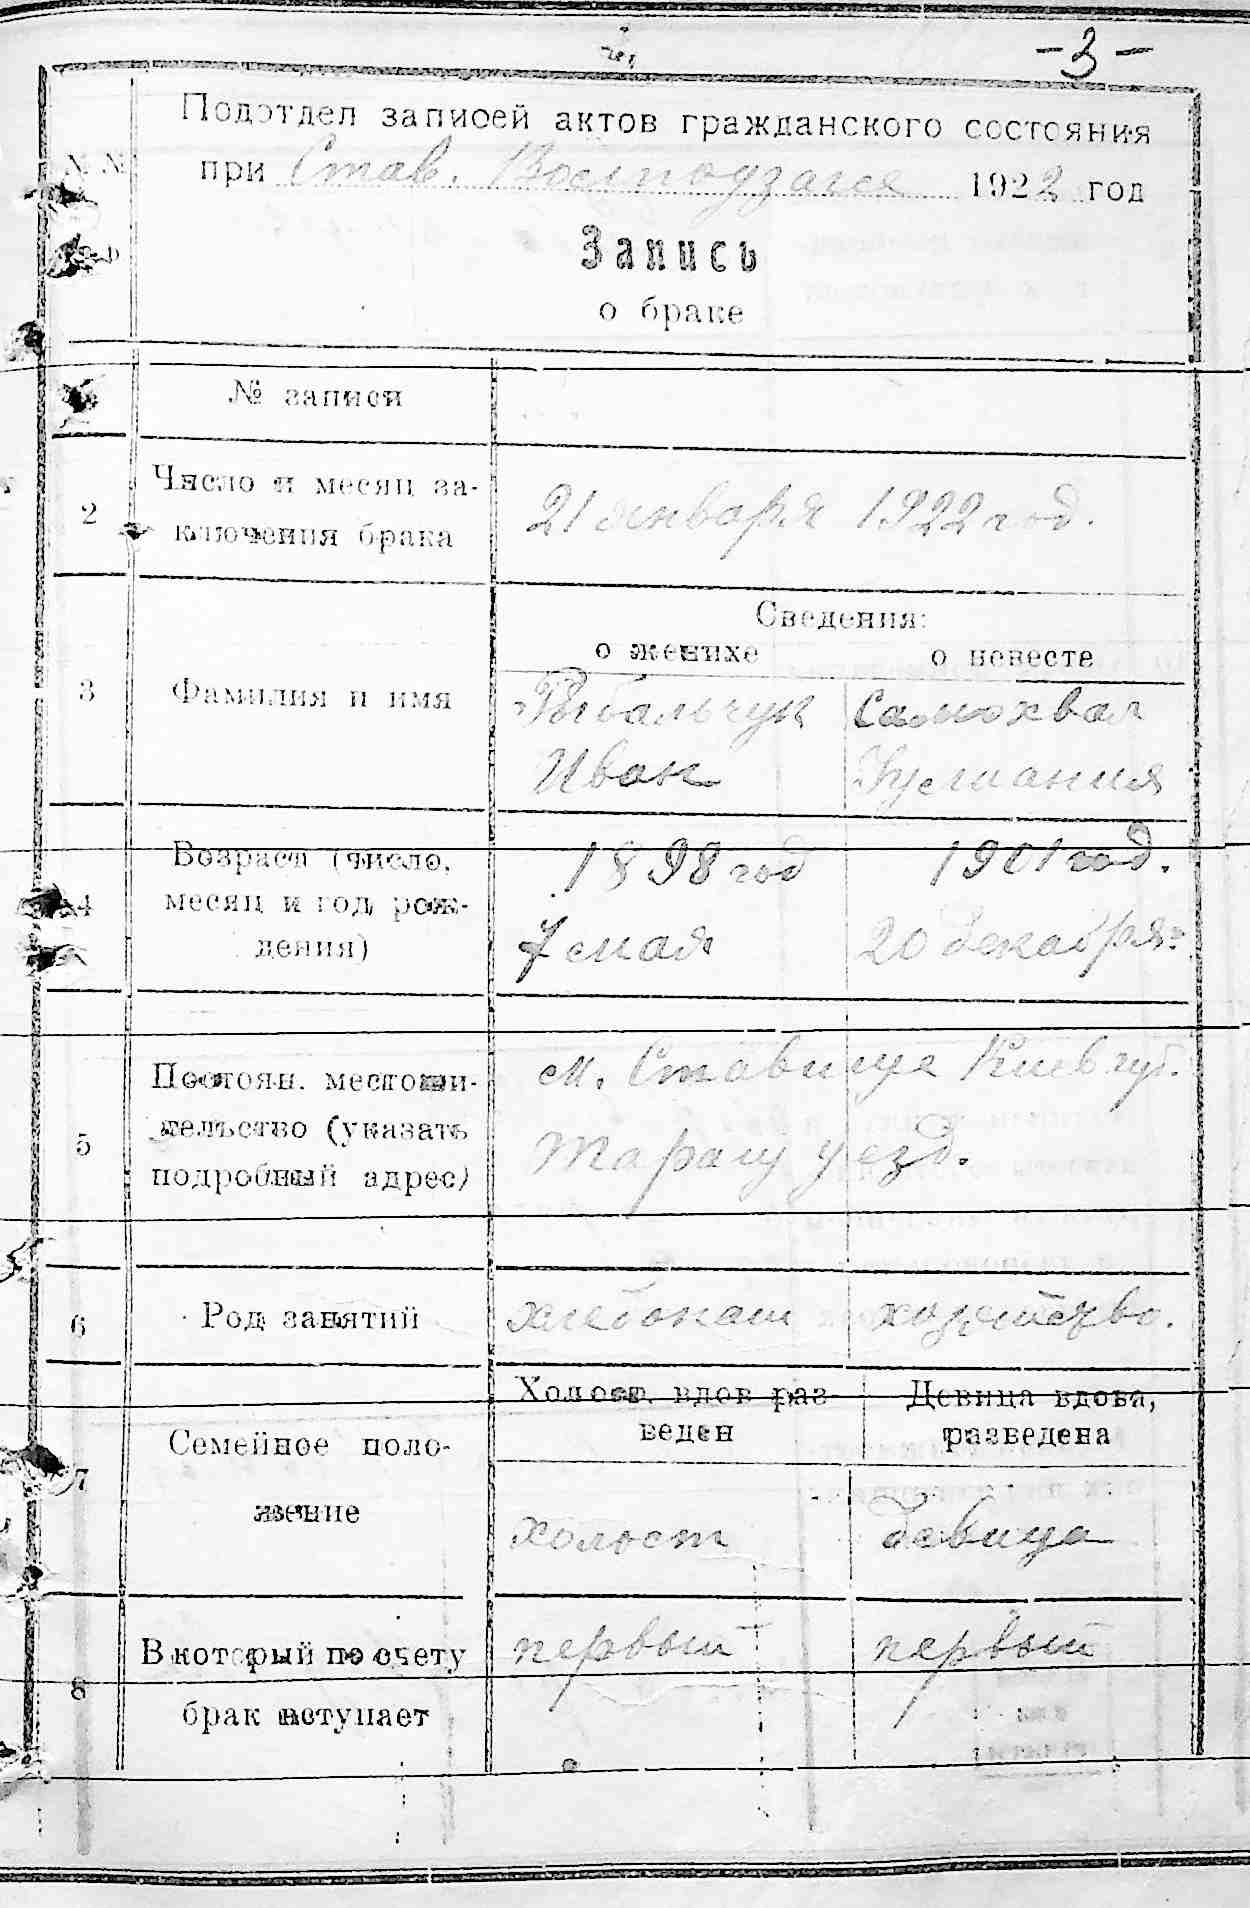 -3-
№№
Подотдел записей актов гражданского состояния
при Став. 1922 год
Запись
о браке
№ записи
2
Число и месяц за-
ключения брака
21 января 1922 год.
3
Фамилия и имя
Сведения:
о женихе
о невесте
Рыбальчук
Иван
Самохвал
4
Возраст (число,
месяц и год рож-
дения)
1898 год
7 мая
1901 год.
20 декабря
5
Постоян. местожи-
тельство (указать
подробный адрес)
м. Ставище Киев губ.
Таращ уезд.
6
Род занятий
хлебопаш
хозяйство.
7
Семейное поло-
жение
Холост. вдов раз-
веден
Девица вдова,
разведена
холост
девица
8
В который по счету
брак вступает
первый
первый